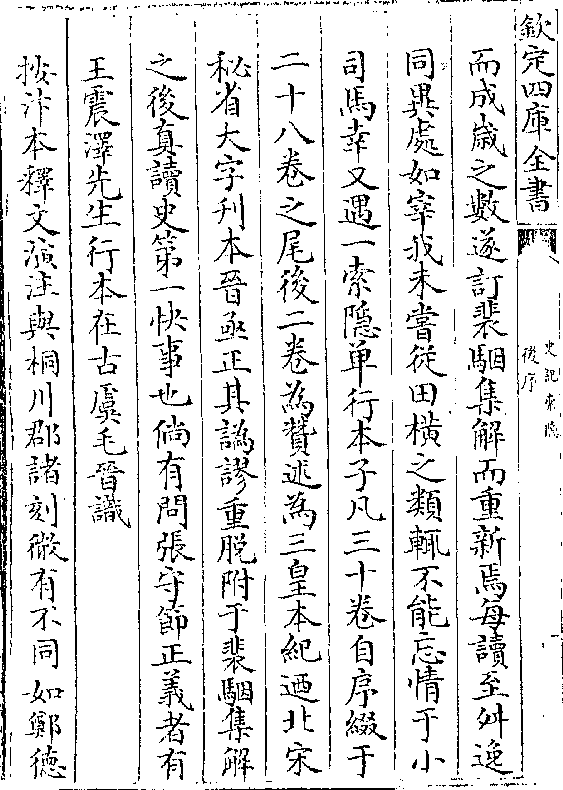 欽定四庫全書
史記索隱
後序
而成歳之數遂訂裴駰集解而重新焉每讀至舛逸
同異處如宰我未嘗從田橫之類輒不能忘情于小
司馬幸又遇一索隱单行本子凡三十卷自序綴于
二十八卷之尾後二卷為贊述為三皇本紀廼北宋
秘省大字刋本晉亟正其譌謬重脱附于裴駰集解
之後真讀史第一快事也倘有問張守節正義者有
王震澤先生行本在古虞毛晉識
按汴本釋文演注與桐川郡諸刻㣲有不同如鄭徳